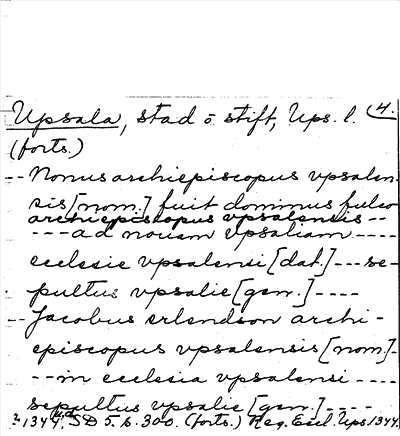 Upsala, stad o stift, Ups. l. (4.
(forts.)
-- Nonus archiepiscopus vpsalen-
sis [nom.] fuit dominus fulco
archiepiscopus vpsalensis --
--- ad nouam vpsaliam ----
ecclesie vpsalensi [dat.] --- se-
pultus vpsalie [gen.] ----
-- Jacobus erlendson archi-
episcopus vpsalensis [nom.] -
-- in ecclesia vpsalensi ----
sepultus vpsalie [gen.] ----
1344, SD 5. s. 300. (forts.) Reg. Eccl. Ups 1344